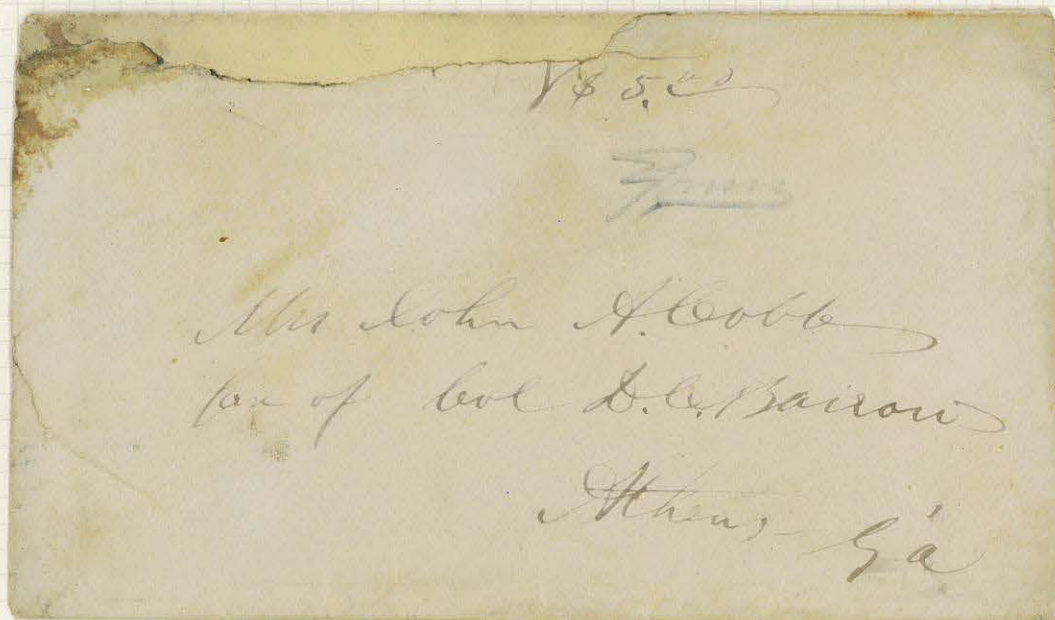 V $ 5.00
Mrs John A. Cobb
Car of Col D. C. Barrow
Athens Ga